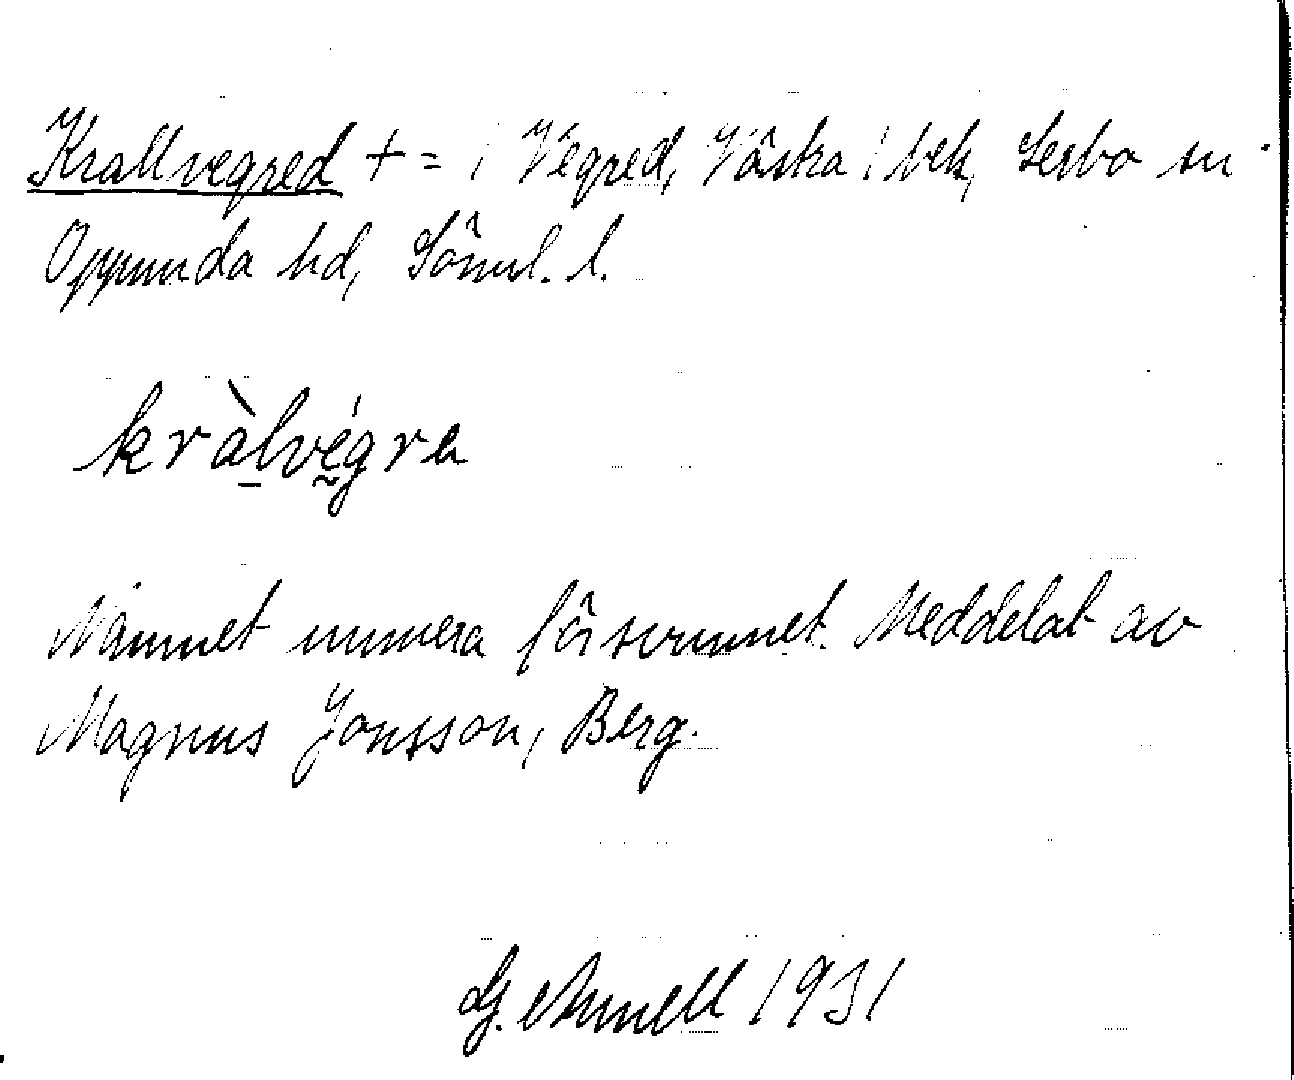 Krallvegred + = / Vegred, Västra / bek, Lerbo sn
Oppunda hd, Söml. l.
kràlvégre
Namnet numera försvunnet. Meddelat av
Magnus Jonsson, Berg.
G. Amnell 1931